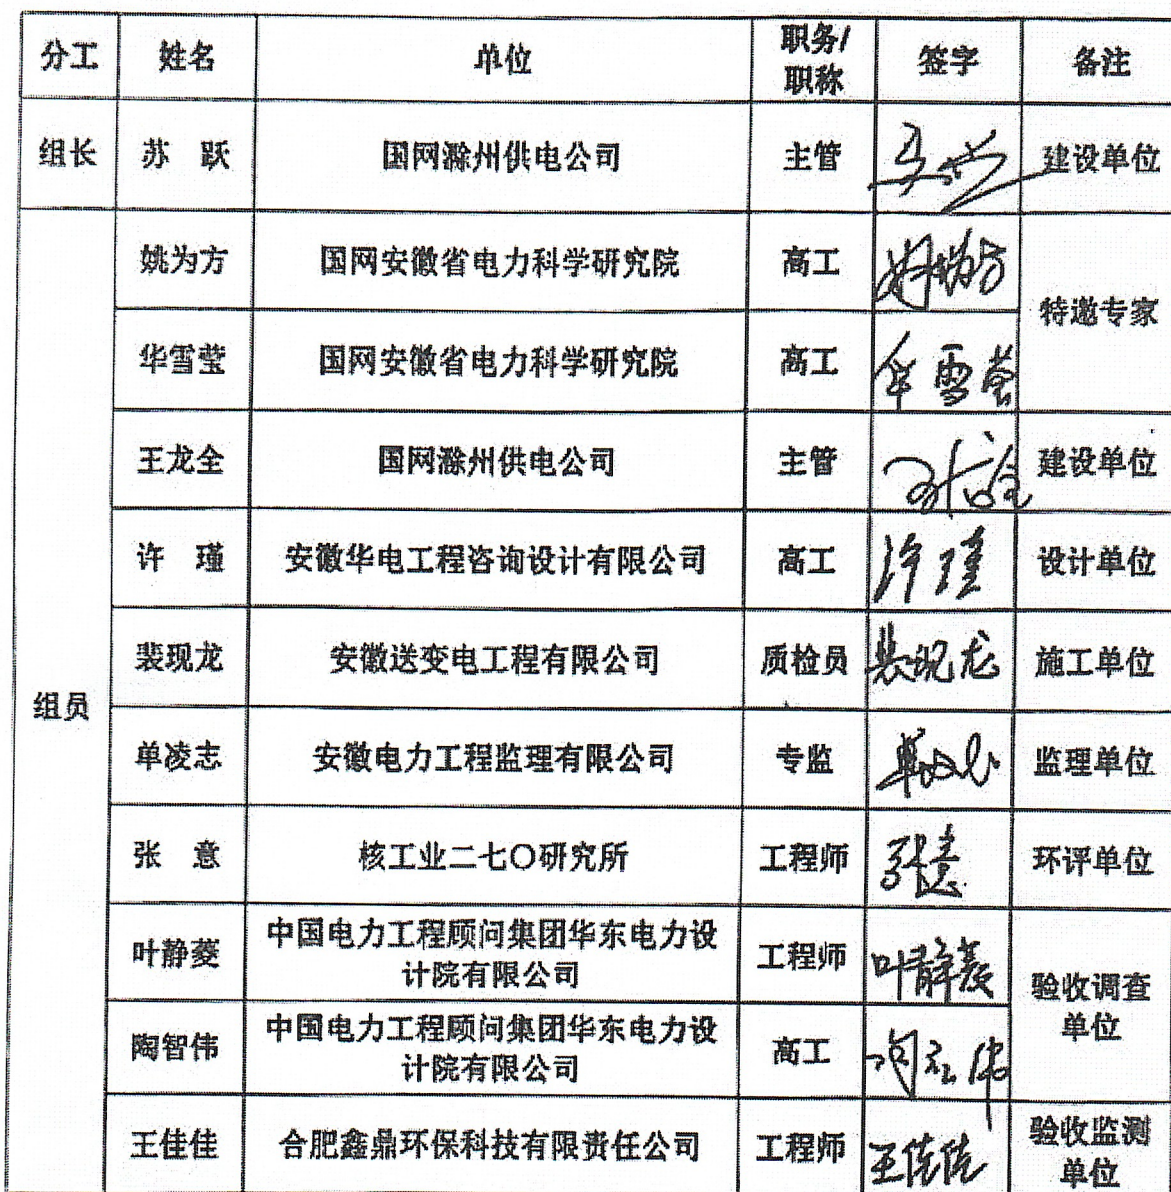 分工 姓名 单位 职务/ 签字 备注
职称
组长 苏 跃 国网滁州供电公司 主管 建设单位
姚为方 国网安徽省电力科学研究院 高工 姚为方
特邀专家
华雪莹 国网安徽省电力科学研究院 高工 华雪莹
王龙全 国网滁州供电公司 主管 建设单位
许 瑾 安徽华电工程咨询设计有限公司 高工 许瑾 设计单位
裴现龙 安徽送变电工程有限公司 质检员 裴现龙 施工单位
组员
单凌志 安徽电力工程监理有限公司 专监 监理单位
张 意 核工业二七〇研究所 工程师 张意 环评单位
叶静菱 中国电力工程顾问集团华东电力设 工程师 叶静菱 验收调查
计院有限公司 单位
陶智伟 中国电力工程顾问集团华东电力设 高工 陶智伟
计院有限公司
王佳佳 合肥鑫鼎环保科技有限责任公司 工程师 王佳佳 验收监测
单位